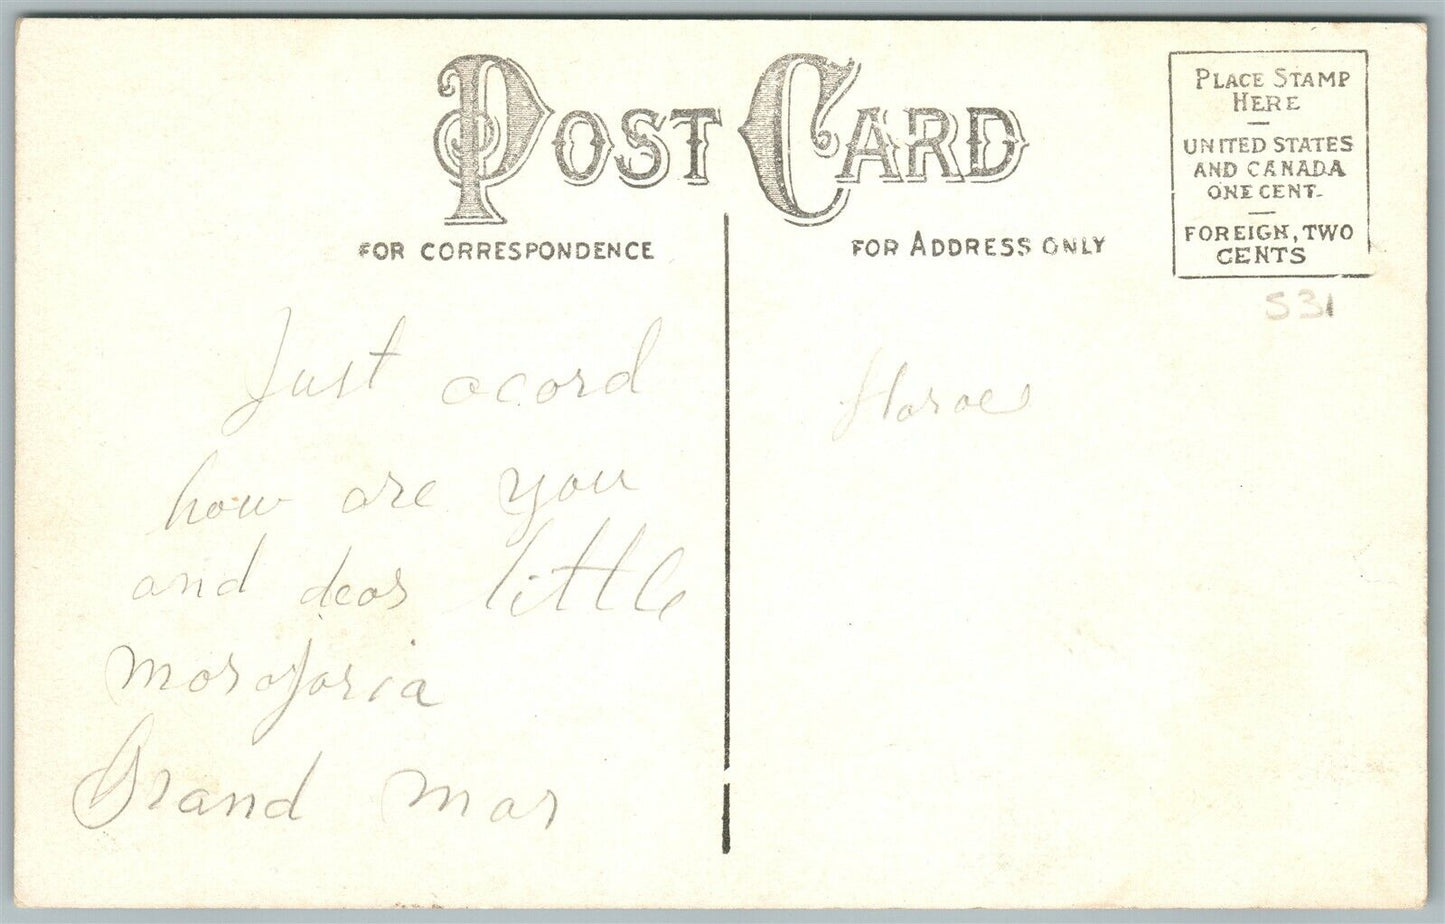 POST CARD
FOR CORRESPONDENCE
FOR ADDRESS ONLY
PLACE STAMP
HERE
UNITED STATES
AND CANADA
ONE CENT.
FOREIGN, TWO
CENTS
531
Just acord
how are you
and dear little
Grand mar